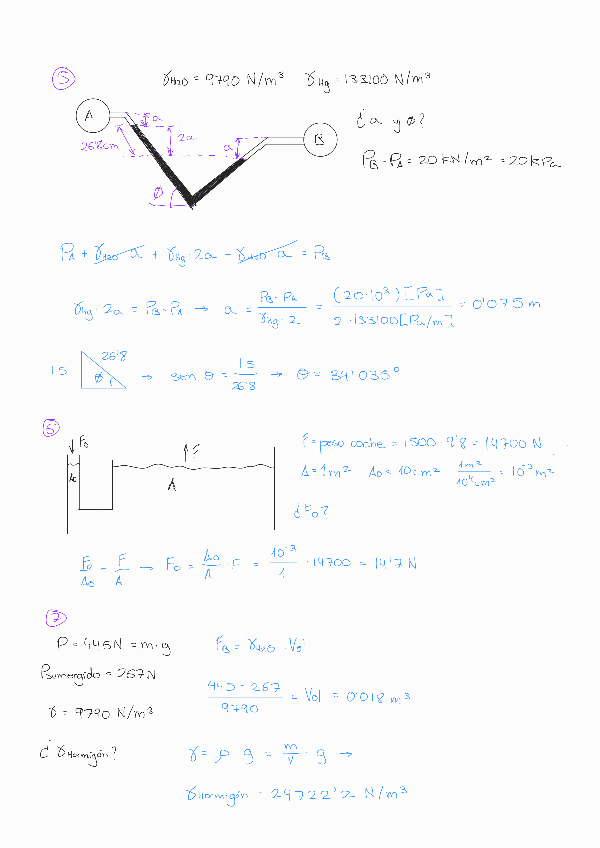 5
γH2O = 9790 N/m³ γHg = 133100 N/m³
A
a
2a
26'8cm
a
B
ϕ
¿ a y ϕ?
PB - PA = 20 KN/m² = 20 kPa
PA + γH2O · a + γHg · 2a - γH2O · a = PB
γHg · 2a = PB - PA → a = PB - PA / γHg · 2 = (20·10³) [Pa] / 2 · 133100 [Pa/m] = 0'075 m
15 26'8 ϕ → sen θ = 15 / 26'8 → θ = 34'035°
6
F0
A0
F
A
F = peso coche = 1500 · 9'8 = 14700 N
A = 1 m² A0 = 10 cm² 1m² / 10⁴cm² = 10⁻³ m²
¿F0?
F0 / A0 = F / A → F0 = A0 / A · F = 10⁻³ / 1 · 14700 = 14'7 N
7
P = 445N = m·g
FB = γH2O · Vol
Psumergido = 267N
445 - 267 / 9790 = Vol = 0'018 m³
γ = 9790 N/m³
¿ γHormigón?
γ = ρ · g = m / V · g →
γHormigón = 24722'2 N/m³